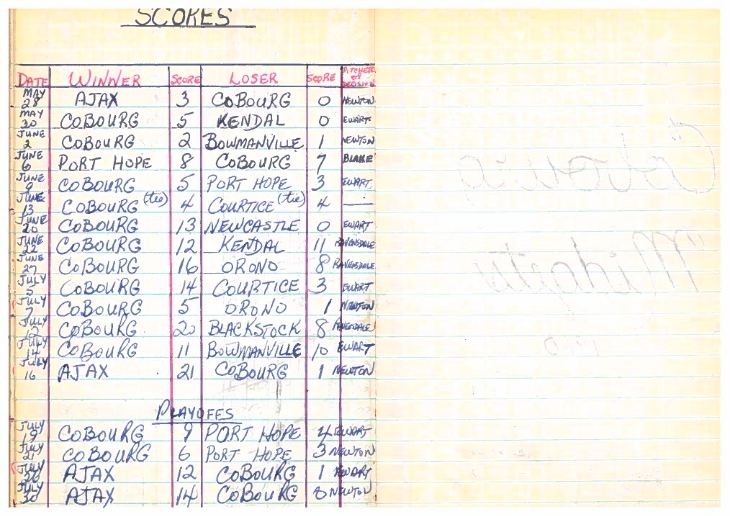 SCORES
DATE WINNER SCORE LOSER SCORE PITCHER OF DECISION
MAY 28 AJAX 3 COBOURG 0 NEWTON
MAY 30 COBOURG 5 KENDAL 0 EWART
JUNE 2 COBOURG 2 BOWMANVILLE 1 NEWTON
JUNE 6 PORT HOPE 8 COBOURG 7 BLAKE
JUNE COBOURG 5 PORT HOPE 3 EWART
JUNE 13 COBOURG (tie) 4 COURTICE (tie) 4 —
JUNE 20 COBOURG 13 NEWCASTLE 0 EWART
JUNE 22 COBOURG 12 KENDAL 11 RAVENSDALE
JUNE 27 COBOURG 16 ORONO 8 RAVENSDALE
JULY 5 COBOURG 14 COURTICE 3 EWART
JULY 7 COBOURG 5 ORONO 1 NEWTON
JULY COBOURG 20 BLACKSTOCK 8
JULY 14 COBOURG 11 BOWMANVILLE 10 EWART
JULY 16 AJAX 21 COBOURG 1 NEWTON
PLAYOFFS
JULY 19 COBOURG 9 PORT HOPE 4 EWART
JULY 21 COBOURG 6 PORT HOPE 3 NEWTON
JULY AJAX 12 COBOURG 1 EWART
JULY 30 AJAX 14 COBOURG 8 NEWTON
Cobourg
Midgets